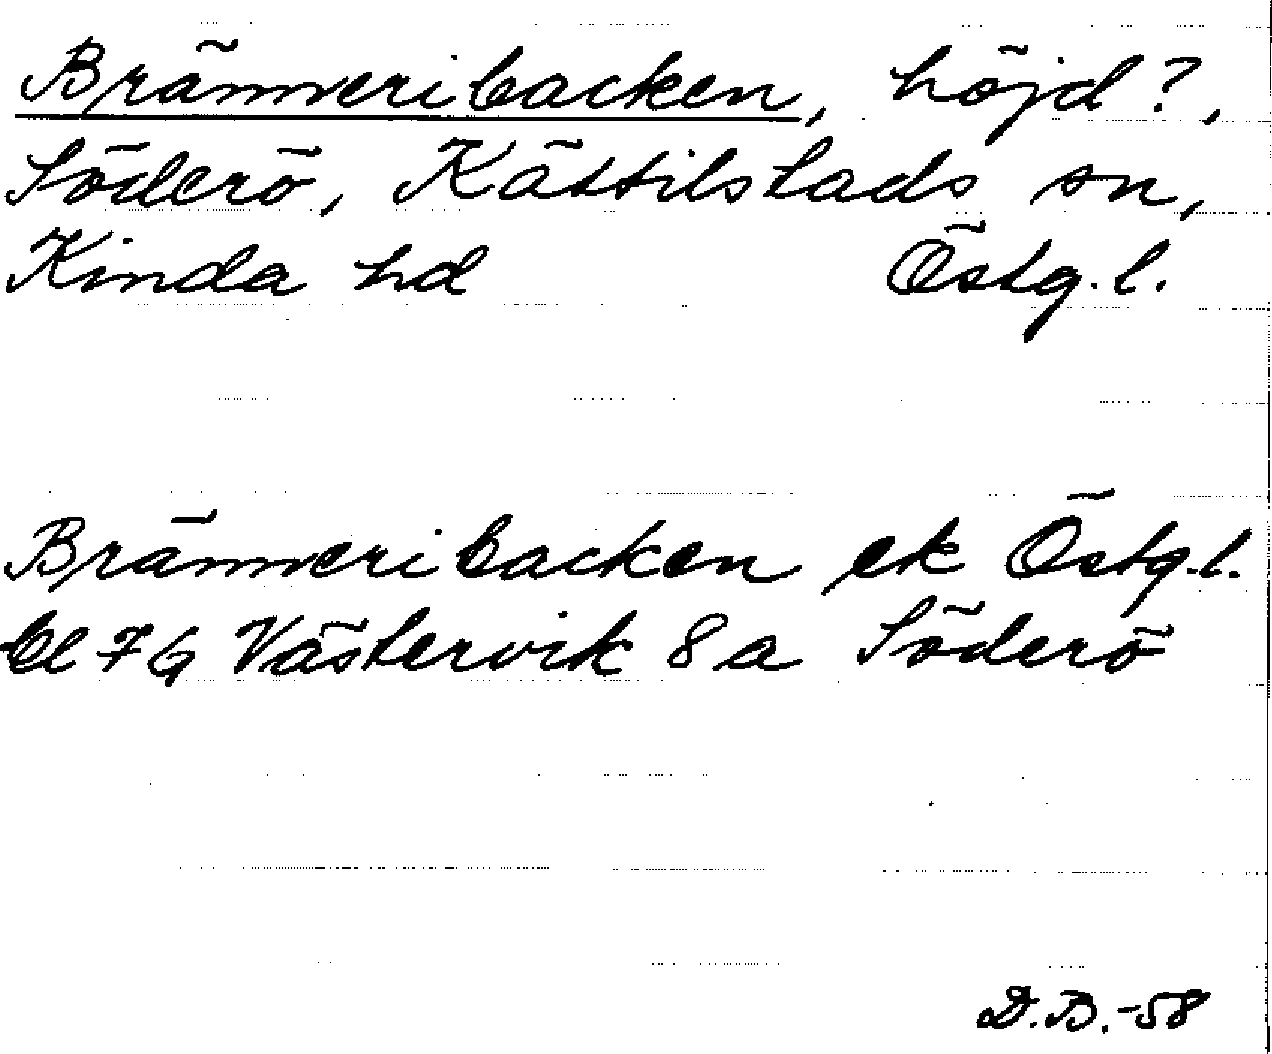 Bränneribacken, höjd?,
Söderö, Kättilstads sn,
Kinda hd Östg.l.
Bränneribacken ek Östg.l.
bl 7G Västervik 8a Söderö
D.B.-58